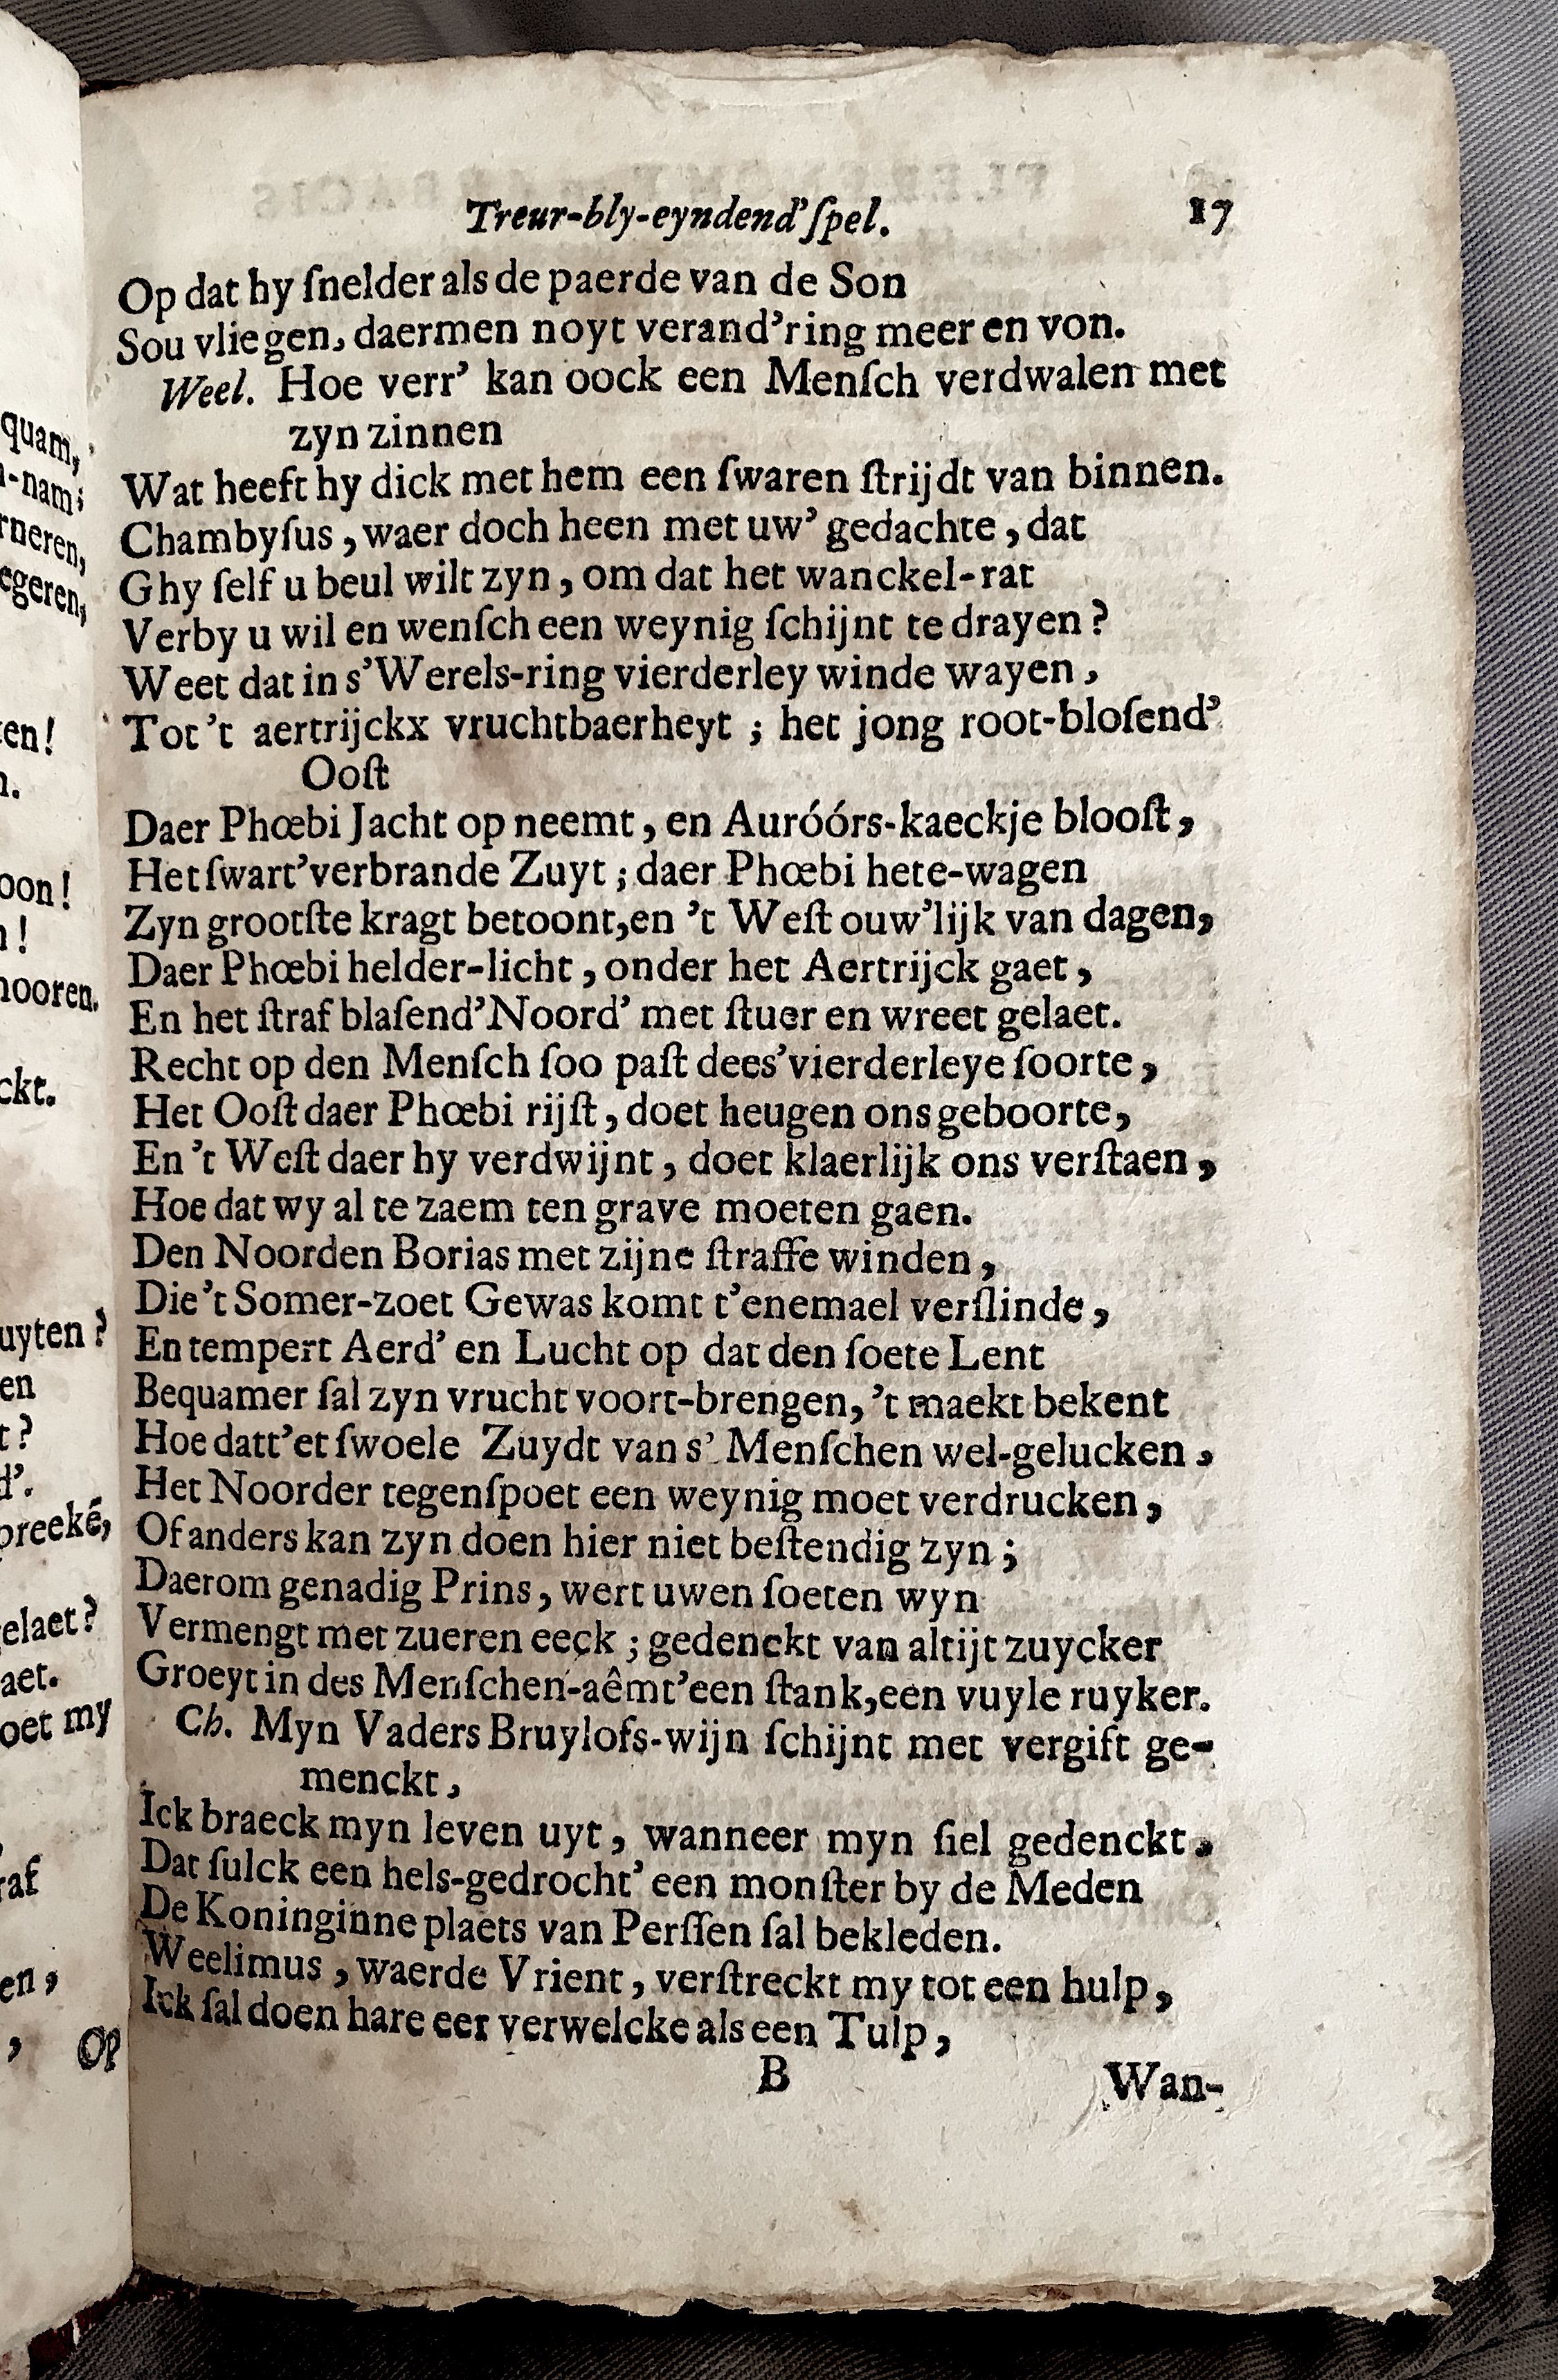 quam,
-nam;
rneren,
egeren,
en!
n.
oon!
n!
hooren.
ckt.
uyten?
en
t?
d'.
preekē,
elaet?
aet.
oet my
raf
en,
,
Op
Treur-bly-eyndend' ſpel.
17
Op dat hy ſnelder als de paerde van de Son
Sou vliegen, daermen noyt verand'ring meer en von.
Weel. Hoe verr' kan oock een Menſch verdwalen met
zyn zinnen
Wat heeft hy dick met hem een ſwaren ſtrijdt van binnen.
Chambyſus, waer doch heen met uw' gedachte, dat
Ghy ſelf u beul wilt zyn, om dat het wanckel-rat
Verby u wil en wenſch een weynig ſchijnt te drayen?
Weet dat in s'Werels-ring vierderley winde wayen,
Tot 't aertrijckx vruchtbaerheyt; het jong root-bloſend'
Ooſt
Daer Phœbi Jacht op neemt, en Auróórs-kaeckje blooſt,
Het ſwart'verbrande Zuyt; daer Phœbi hete-wagen
Zyn grootſte kragt betoont, en 't Weſt ouw'lijk van dagen,
Daer Phœbi helder-licht, onder het Aertrijck gaet,
En het ſtraf blaſend'Noord' met ſtuer en wreet gelaet.
Recht op den Menſch ſoo paſt dees'vierderleye ſoorte,
Het Ooſt daer Phœbi rijſt, doet heugen ons geboorte,
En 't Weſt daer hy verdwijnt, doet klaerlijk ons verſtaen,
Hoe dat wy al te zaem ten grave moeten gaen.
Den Noorden Borias met zijne ſtraffe winden,
Die't Somer-zoet Gewas komt t'enemael verſlinde,
En tempert Aerd' en Lucht op dat den ſoete Lent
Bequamer ſal zyn vrucht voort-brengen, 't maekt bekent
Hoe datt'et ſwoele Zuydt van s' Menſchen wel-gelucken,
Het Noorder tegenſpoet een weynig moet verdrucken,
Of anders kan zyn doen hier niet beſtendig zyn;
Daerom genadig Prins, wert uwen ſoeten wyn
Vermengt met zueren eeck; gedenckt van altijt zuycker
Groeyt in des Menſchen-aêmt'een ſtank, een vuyle ruyker.
Ch. Myn Vaders Bruylofs-wijn ſchijnt met vergift ge-
menckt,
Ick braeck myn leven uyt, wanneer myn ſiel gedenckt,
Dat ſulck een hels-gedrocht' een monſter by de Meden
De Koninginne plaets van Perſſen ſal bekleden.
Weelimus, waerde Vrient, verſtreckt my tot een hulp,
Ick ſal doen hare eer verwelcke als een Tulp,
B
Wan-